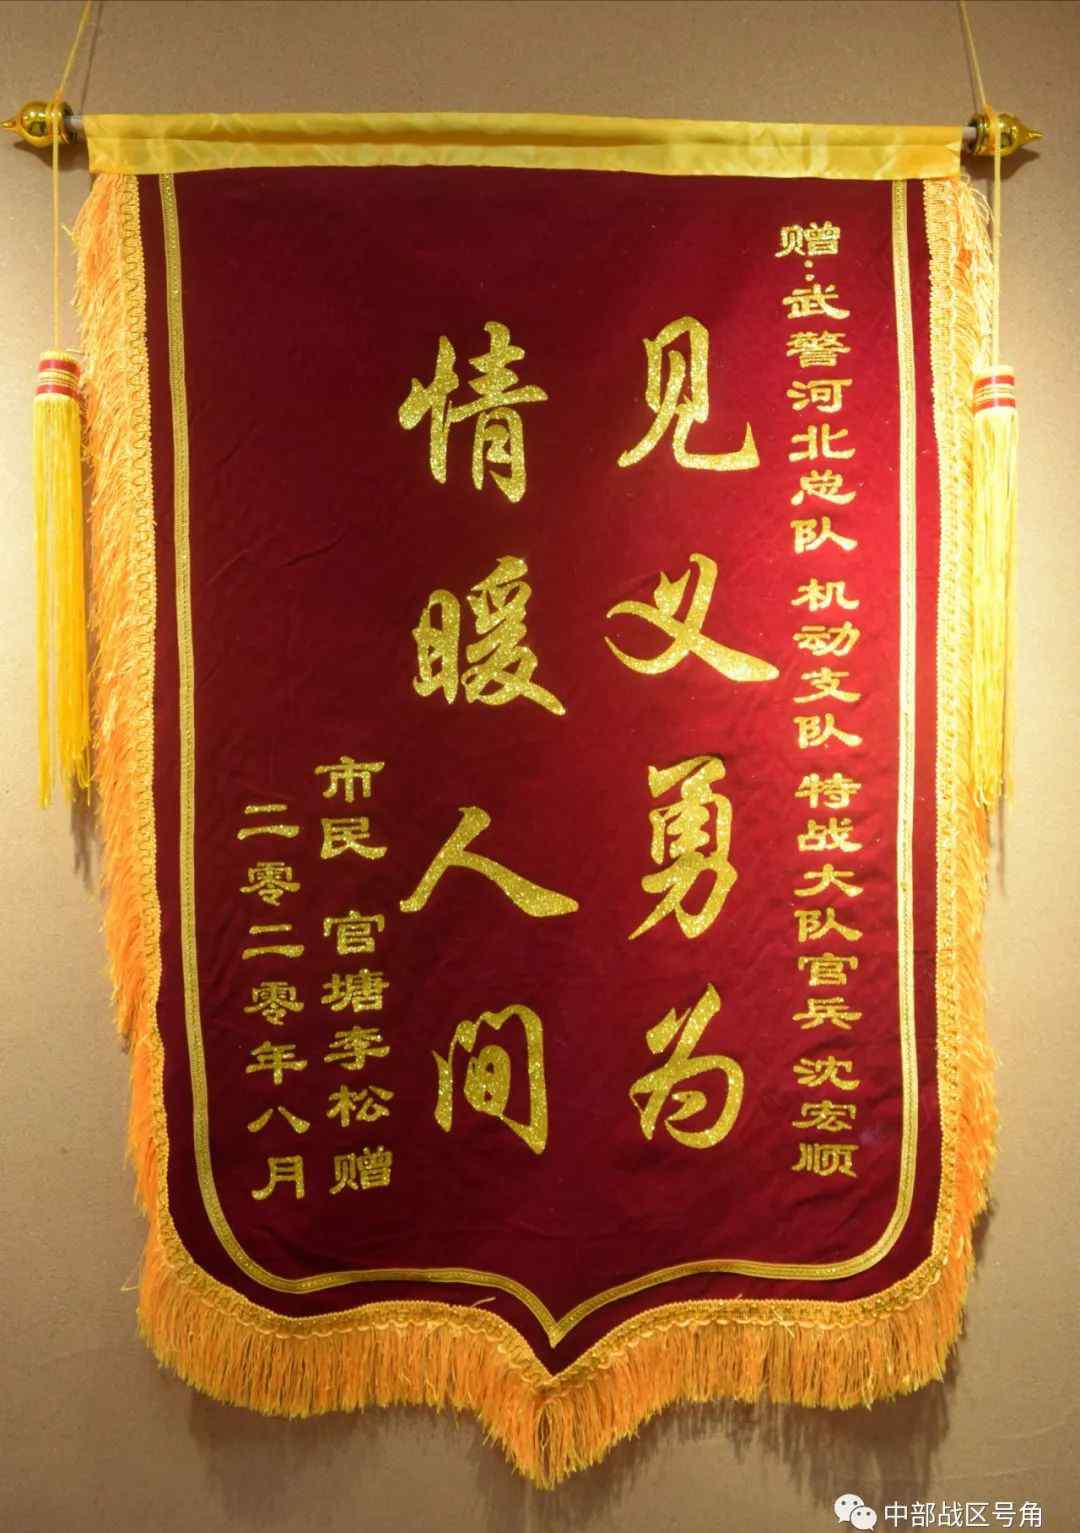 赠：武警河北总队 机动支队 特战大队官兵 沈宏顺
见义勇为
情暖人间
市民 官塘李松 赠
二零二零年八月
中部战区号角